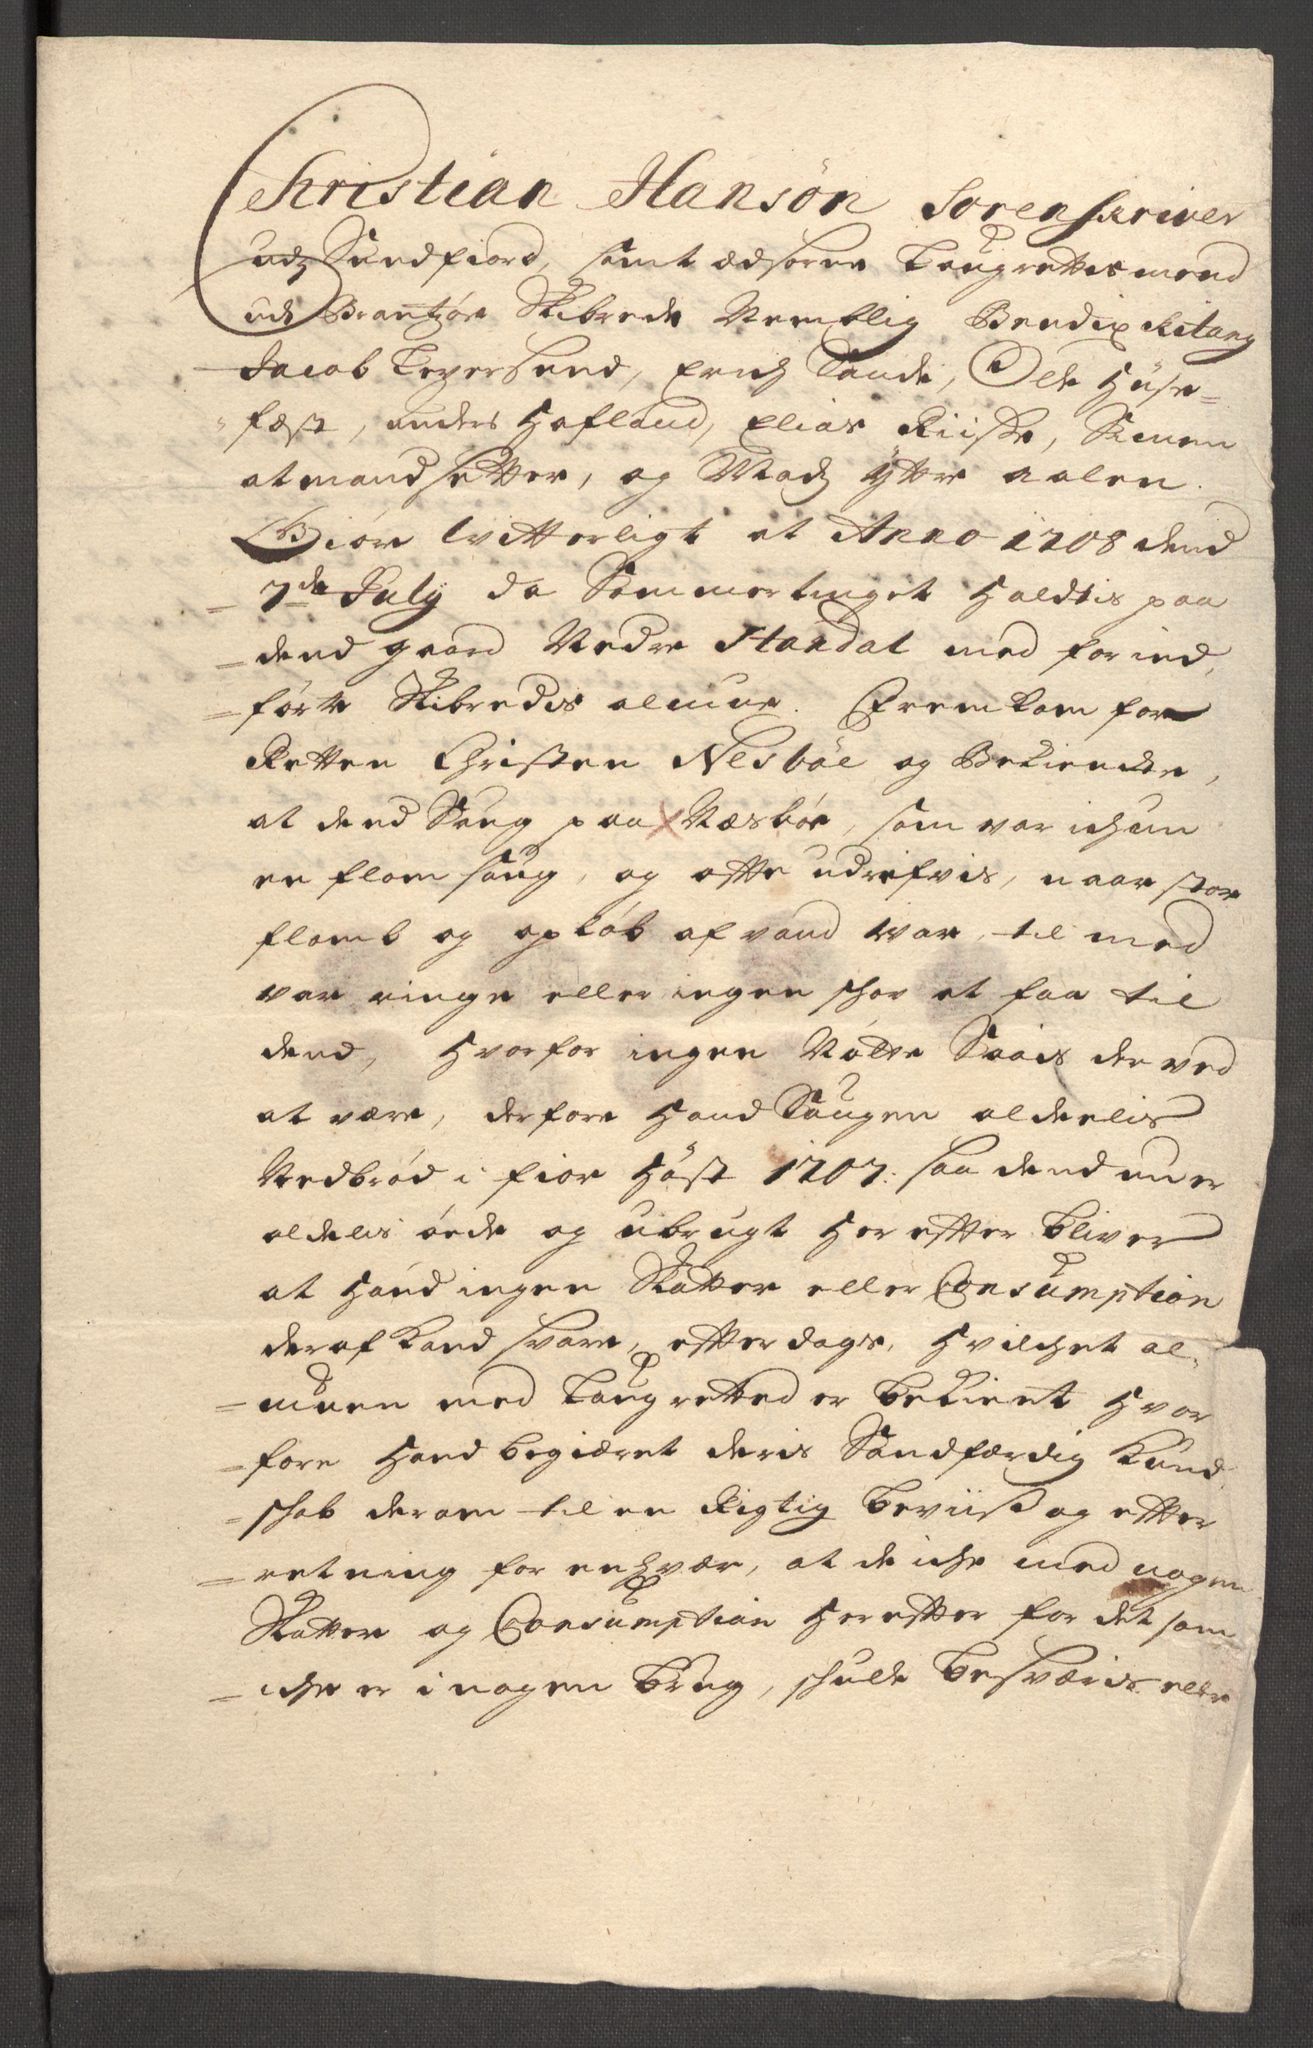 Christian Hansøn Sorenskriver
udj Sundfiord, samt Edsorne Laugrettismend
udi Brantzøe Skibrede Nemblig Bendix Kitang
Jacob Leversund, Erich Sande, Olle Huse-
-fæst, anders Hofland, Elias Riise, Simen
atmandsetter, og Madz ÿttre aalen.
Giøre witterligt at Anno 1708 dend
- 7de July da Sommertinget Holdtis paa
- dend gaard Nedre Standal med for ind,
- førte Skibredis almue. Fremkom for
Retten Christen Nesbøe og Bekiendte,
at dend Saug paa Næsbøe, som var ichun
en flom saug, og offte udrefvis, naar stor
flomb og opløb af vand war, til med
var ringe eller ingen schov at faa til
dend, Hvorfor ingen Nøtte Saais der ved
at være, derfore Hand Saugen aldeelis
Nedbrød i fior Høst 1707. saa dend nu er
aldelis øede og ubrugt Her effter bliver
at Hand ingen Skatter eller Consumption
deraf kand svare, effter dags, Hvilchet al,
- muen med Laugretted er bekient Hvor
- fore Hand begiæret deris Sandfærdig Kund
- schab derom til en Rigtig beviiss og effter
- retning for enhver, at de iche med nogen
Skatter og Consumption Her effter for det som
- iche er i nogen brug, schulle besværis eller